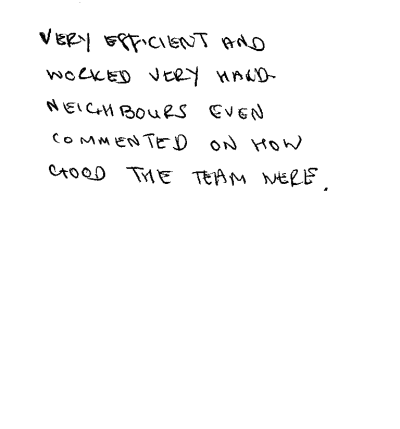 VERY EFFICIENT AND
WORKED VERY HARD
NEIGHBOURS EVEN
COMMENTED ON HOW
GOOD THE TEAM WERE.